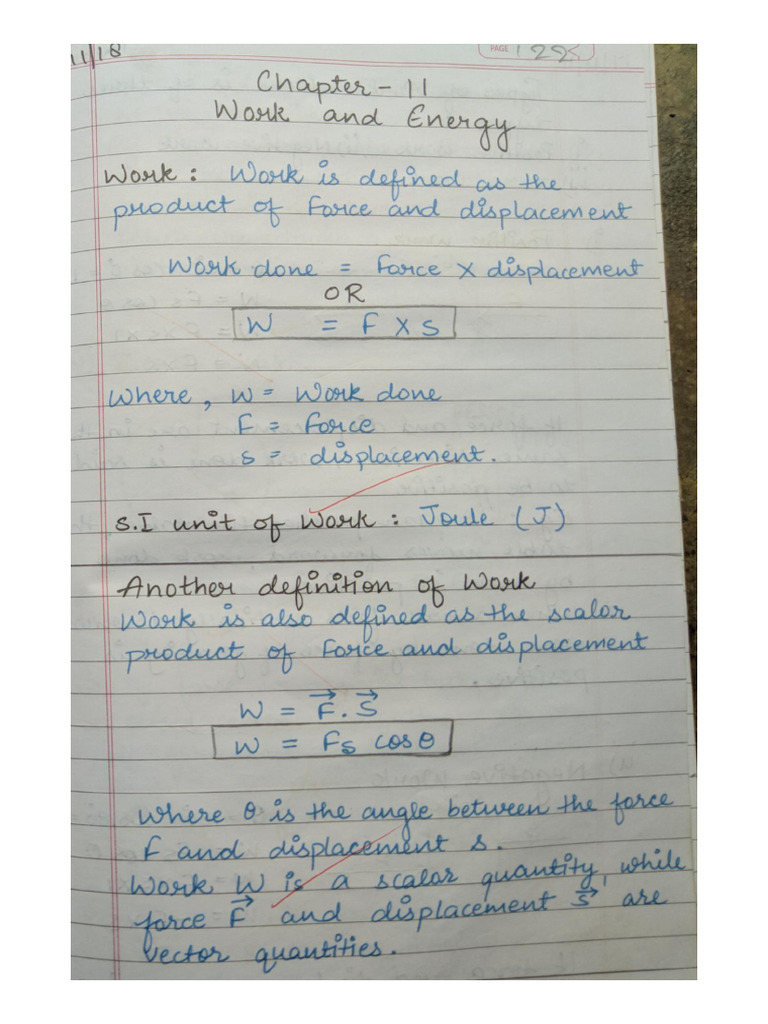 11/18
PAGE 122
Chapter - 11
Work and Energy
Work : Work is defined as the
product of Force and displacement
Work done = Force X displacement
OR
W = F X S
Where, W = Work done
F = Force
S = displacement.
S.I unit of Work : Joule (J)
Another definition of Work
Work is also defined as the scalor
product of Force and displacement
W = F⃗ . S⃗
W = Fs cosθ
Where θ is the angle between the force
F and displacement s.
Work W is a scalor quantity, while
force F⃗ and displacement S⃗ are
vector quantities.